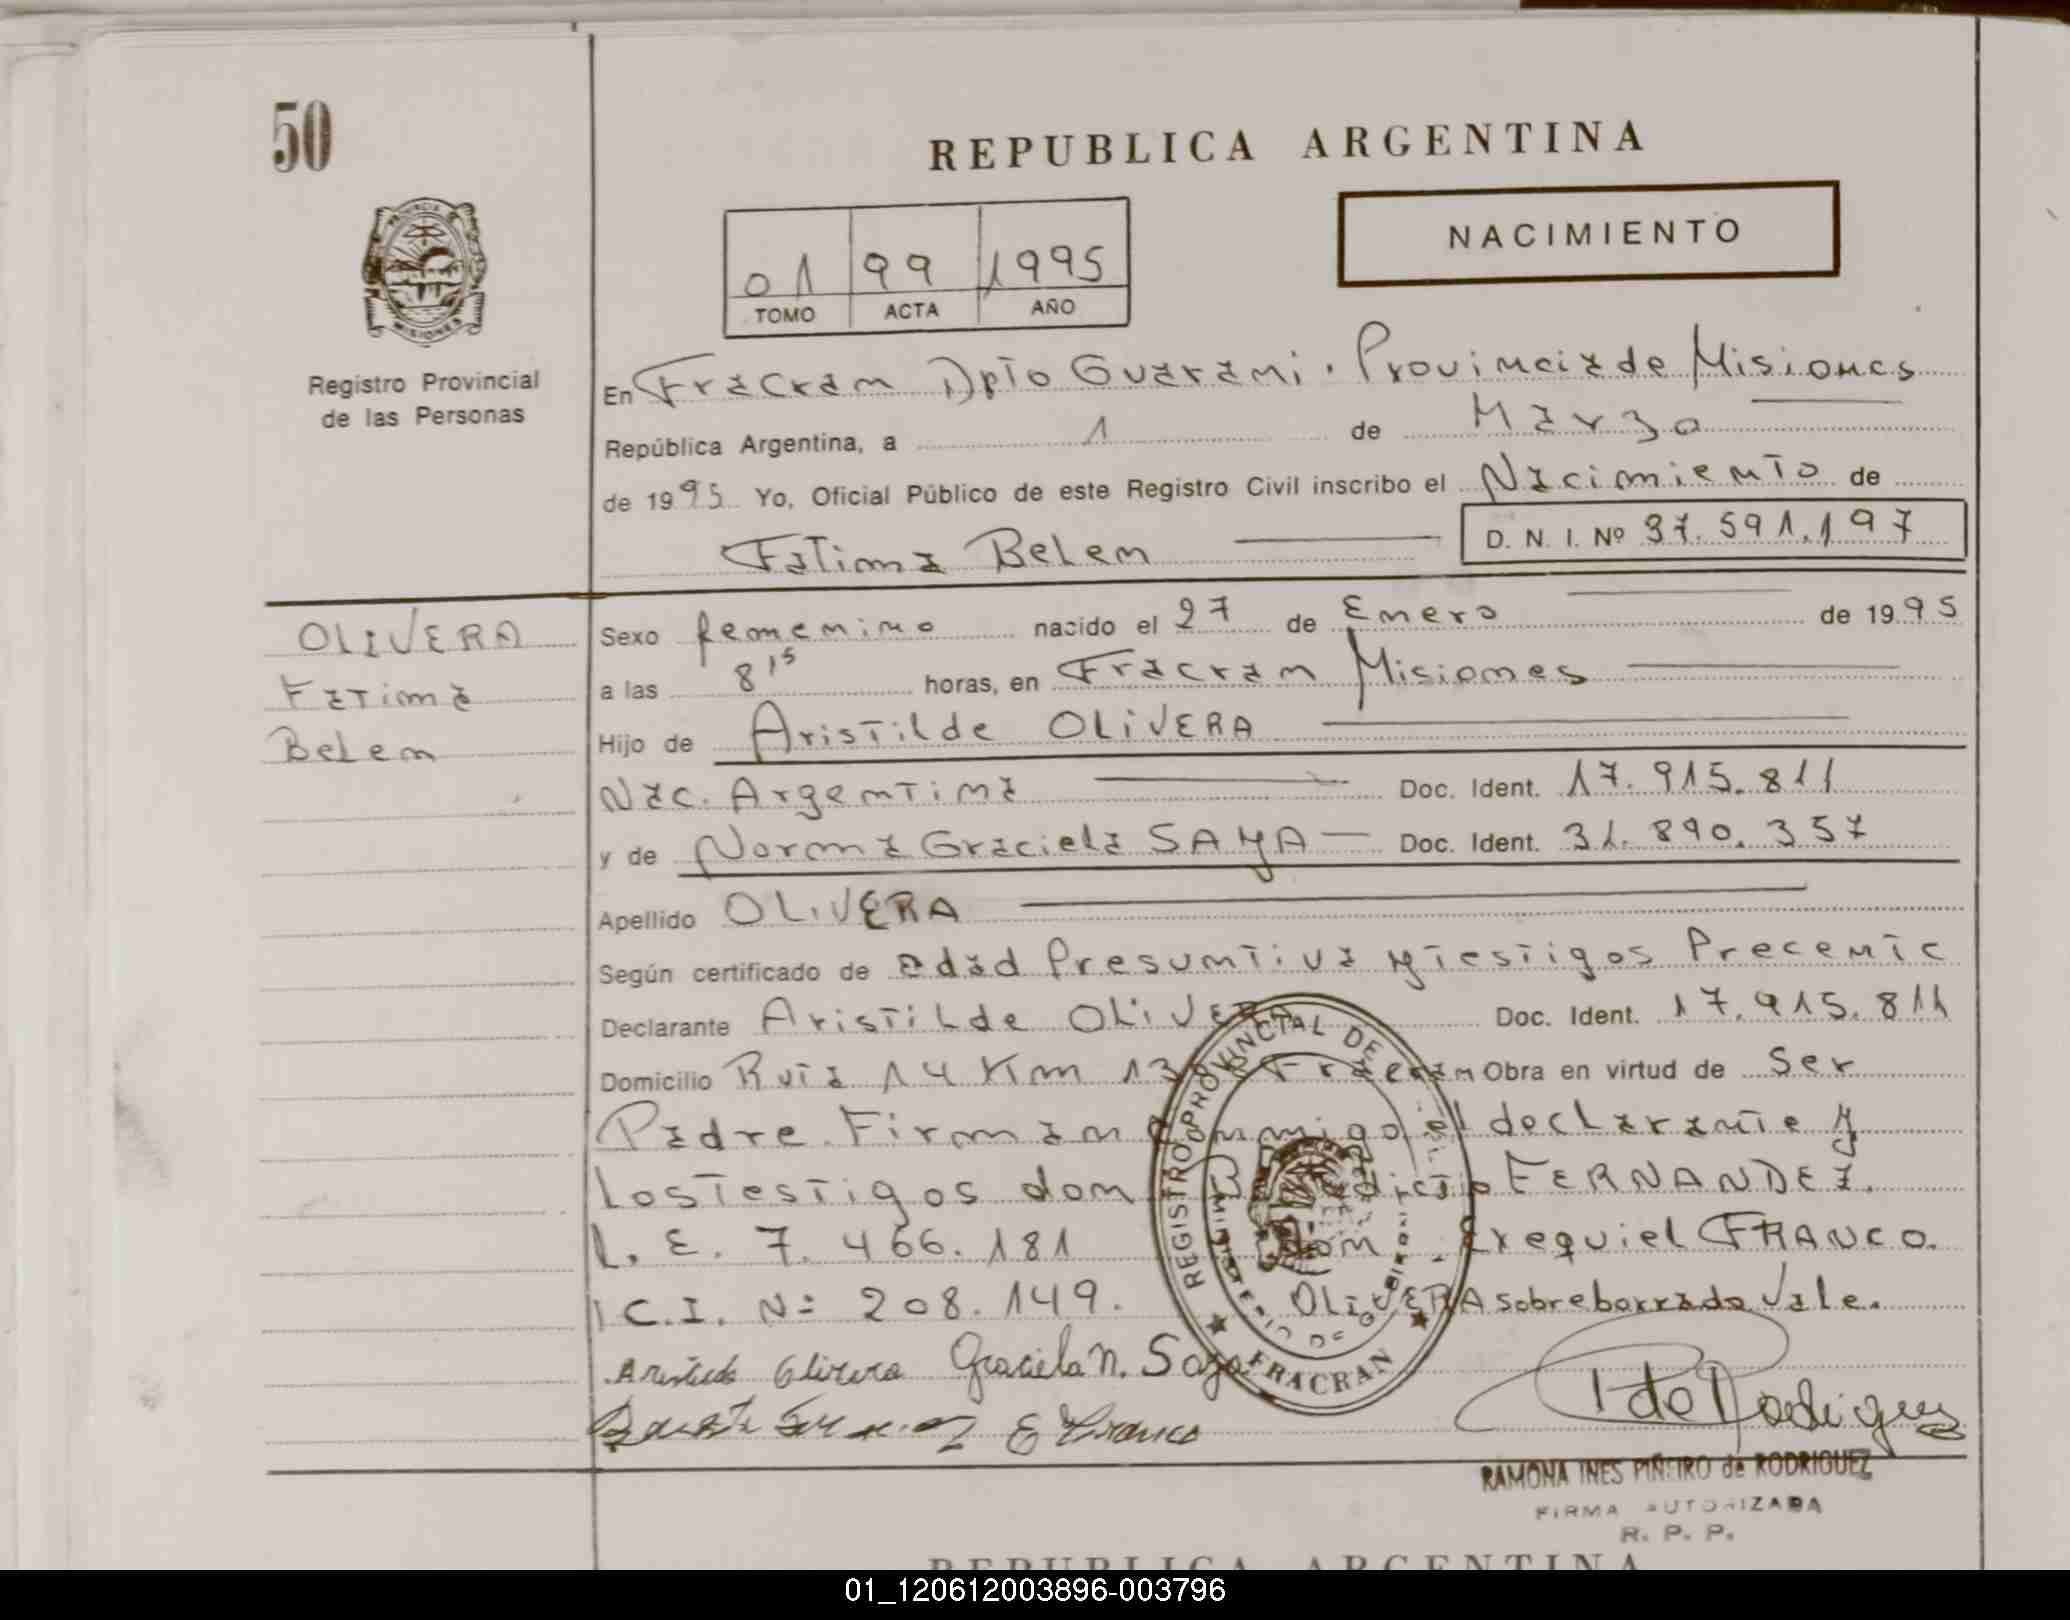 50
REPUBLICA ARGENTINA
NACIMIENTO
01 99 1995
TOMO ACTA AÑO
PROVINCIA DE
MISIONES
Registro Provincial
de las Personas
En Fracran Dpto Guarani. Provincia de Misiones
República Argentina, a 1 de Marzo
de 1995 Yo, Oficial Público de este Registro Civil inscribo el Nacimiento de
Fatima Belen D. N. I. Nº 37.591.197
OLIVERA
Fatima
Belen
Sexo femenino nacido el 27 de Enero de 1995
a las 8 15 horas, en Fracran Misiones
Hijo de Aristilde OLIVERA
Nac. Argentina Doc. Ident. 17.915.811
y de Norma Graciela SAYA Doc. Ident. 31.890.357
Apellido OLIVERA
Según certificado de edad Presuntiva y testigos Precentc
Declarante Aristilde OLIVERA Doc. Ident. 17.915.811
Domicilio Ruta 14 Km 13 Fracran Obra en virtud de Ser
Padre. Firman Conmigo el declarante y
Los Testigos don FERNANDEZ.
L. E. 7.466.181 don Exequiel FRANCO.
C.I. Nº 208.149. OLIVERA sobreborrado Vale.
Olivera Graciela N. E Franco
REGISTRO PROVINCIAL DE
MINISTERIO DE GOBIERNO
FRACRAN
P de Rodriguez
RAMONA INES PIÑEIRO de RODRIGUEZ
FIRMA AUTORIZADA
R. P. P.
REPUBLICA ARGENTINA
01_120612003896-003796